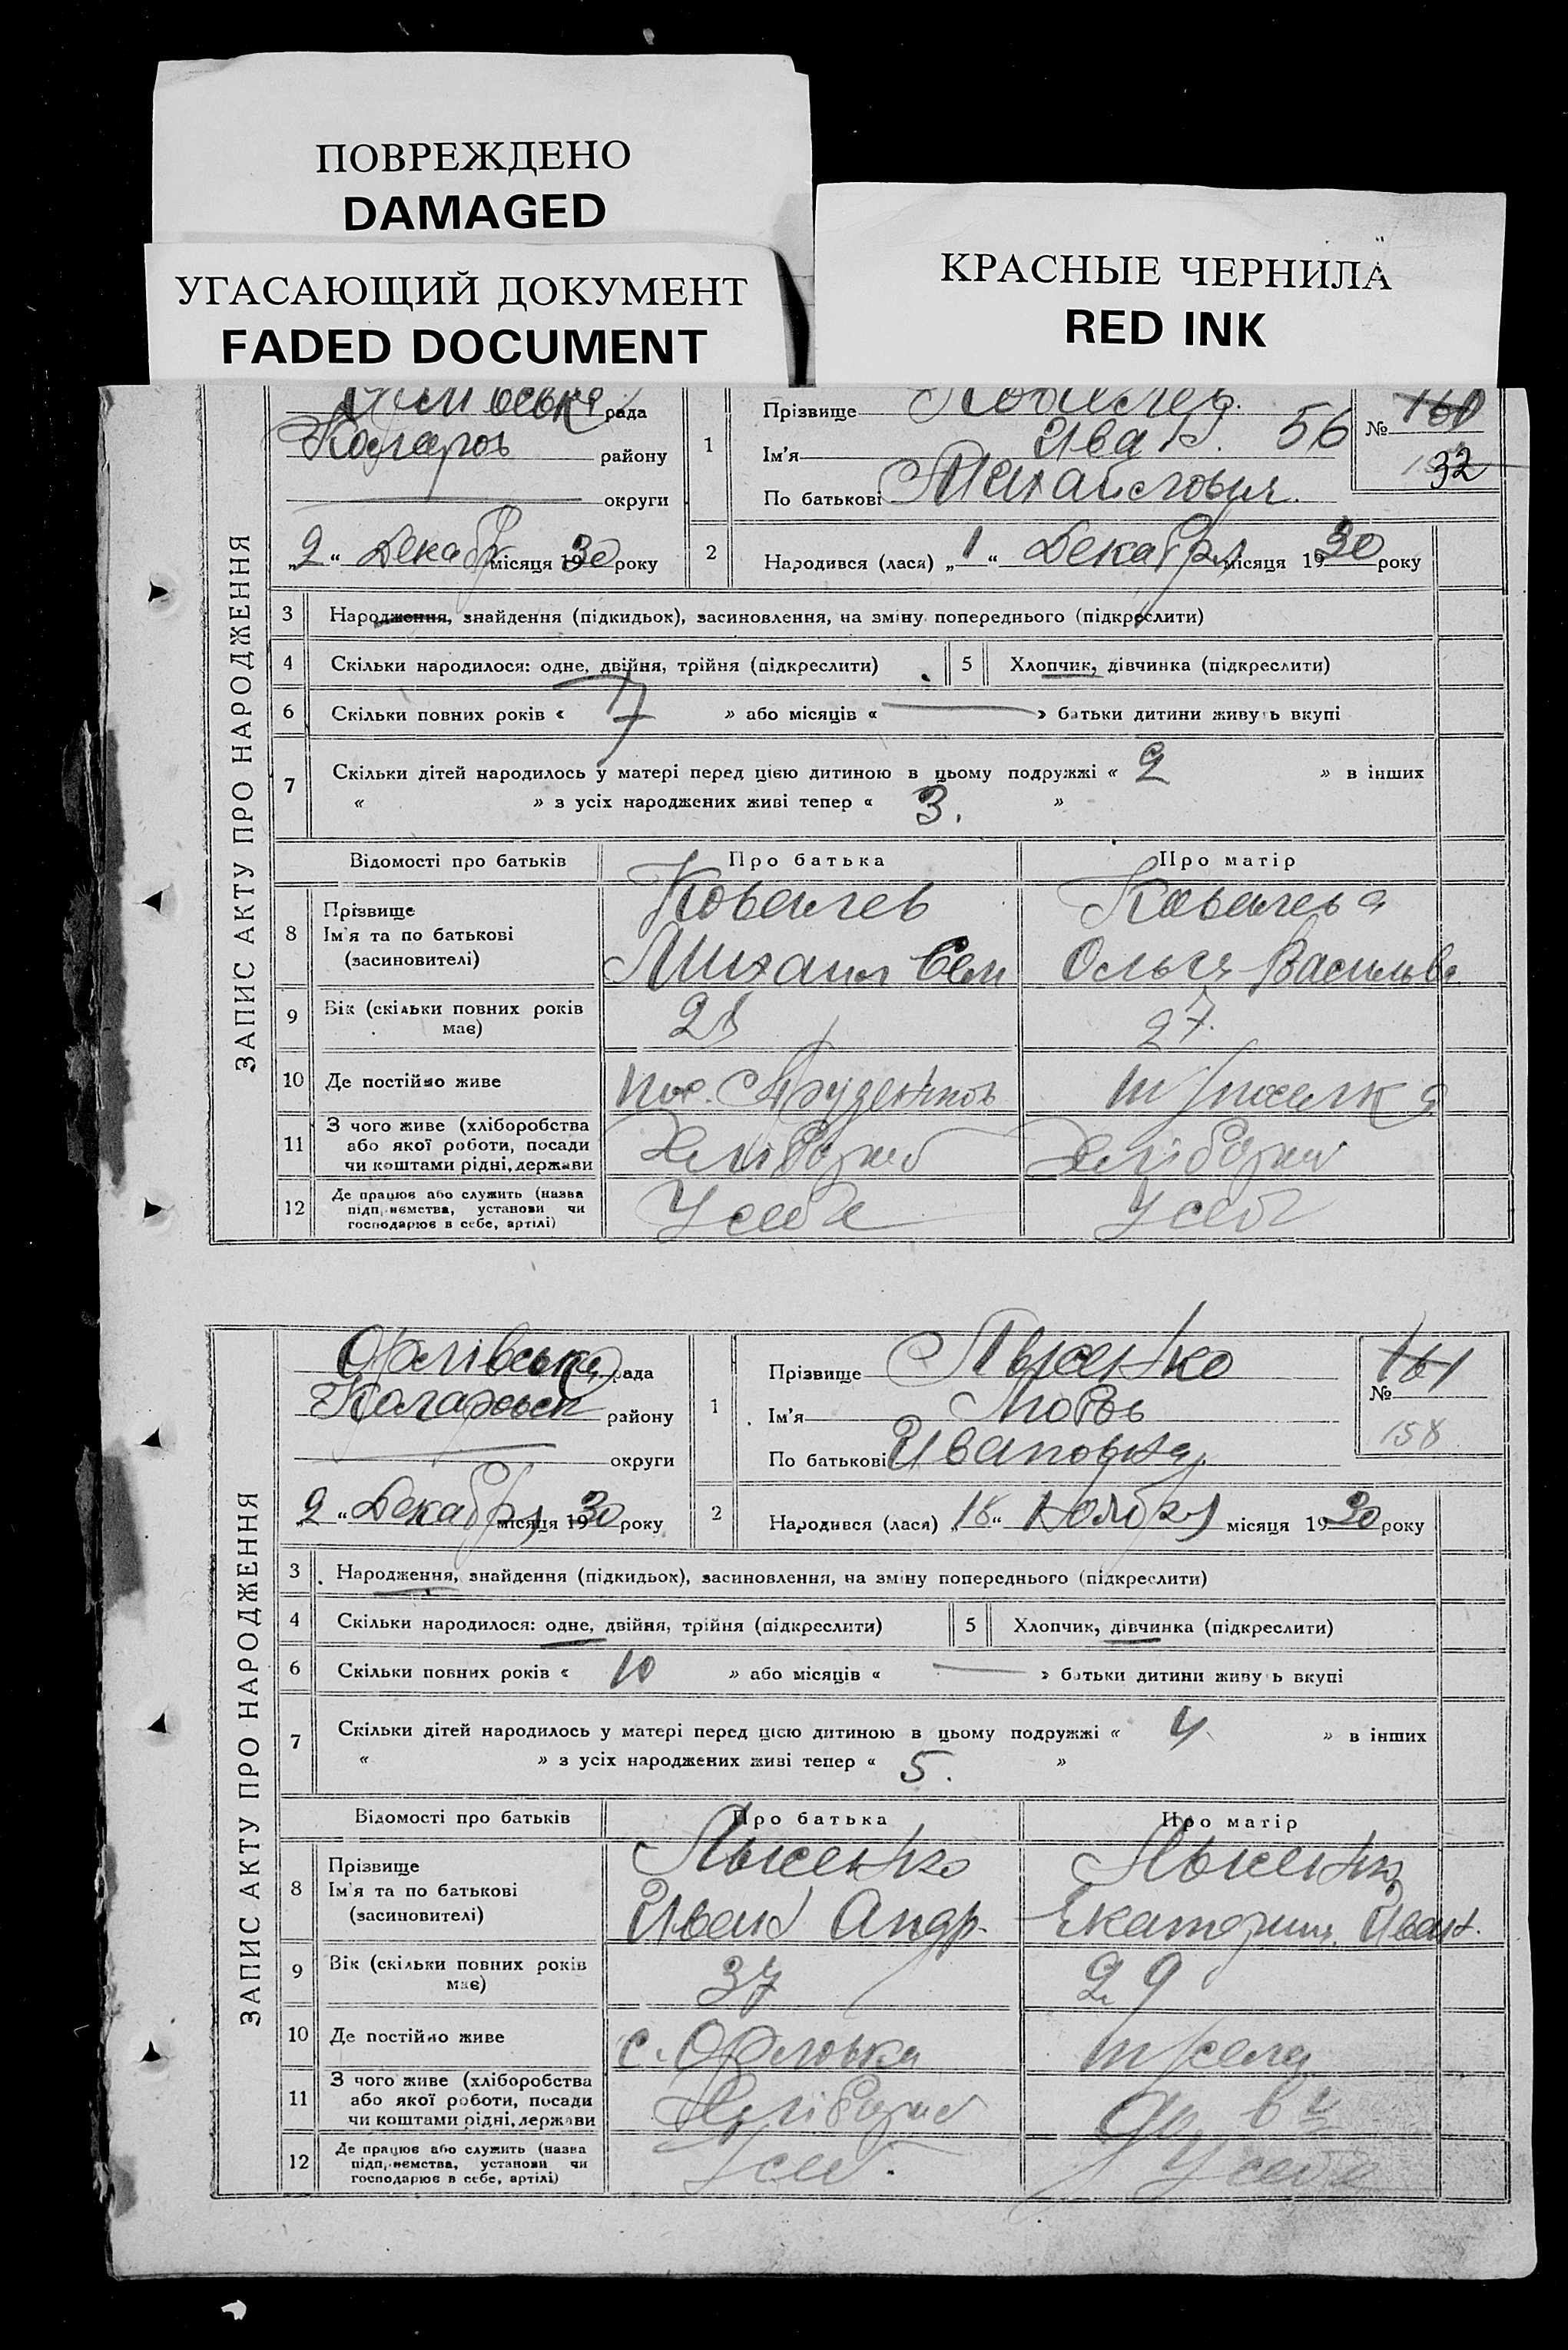 ПОВРЕЖДЕНО
DAMAGED
УГАСАЮЩИЙ ДОКУМЕНТ
FADED DOCUMENT
КРАСНЫЕ ЧЕРНИЛА
RED INK
ЗАПИС АКТУ ПРО НАРОДЖЕННЯ
рада
району
округи
„2“ Декабр місяця 1930 року
1
Прізвище
Ім'я Иван. 56
По батькові Михайлович.
№ 160
32
2
Народився (лася) „1“ Декабря місяця 1930 року
3 Народження, знайдення (підкидьок), засиновлення, на зміну попереднього (підкреслити)
4 Скільки народилося: одне, двійня, трійня (підкреслити) 5 Хлопчик, дівчинка (підкреслити)
6 Скільки повних років « 7 » або місяців « — » батьки дитини живуть вкупі
7 Скільки дітей народилось у матері перед цією дитиною в цьому подружжі « 2 » в інших
« » з усіх народжених живі тепер « 3. »
Відомості про батьків Про батька Про матір
8 Прізвище Ковалев Ковалева
Ім'я та по батькові
(засиновителі) Михаил Сем Ольга Васильев
9 Вік (скільки повних років
має) 27.
10 Де постійно живе пос.
11 З чого живе (хліборобства
або якої роботи, посади
чи коштами рідні, держави
12 Де працює або служить (назва
підприємства, установи чи
господарює в себе, артілі) У себе У себе
ЗАПИС АКТУ ПРО НАРОДЖЕННЯ
Орлівська рада
району
округи
„2“ Декабря місяця 1930 року
1
Прізвище Лысенко
Ім'я Любовь
По батькові Ивановна
№ 161
158
2
Народився (лася) „18“ Ноября місяця 1930 року
3 Народження, знайдення (підкидьок), засиновлення, на зміну попереднього (підкреслити)
4 Скільки народилося: одне, двійня, трійня (підкреслити) 5 Хлопчик, дівчинка (підкреслити)
6 Скільки повних років « 10 » або місяців « — » батьки дитини живуть вкупі
7 Скільки дітей народилось у матері перед цією дитиною в цьому подружжі « 4 » в інших
« » з усіх народжених живі тепер « 5. »
Відомості про батьків Про батька Про матір
8 Прізвище Лысенко Лысенко
Ім'я та по батькові
(засиновителі) Иван Андр. Екатерина Иван.
9 Вік (скільки повних років
має) 37 29
10 Де постійно живе с. Орловка
11 З чого живе (хліборобства
або якої роботи, посади
чи коштами рідні, держави
12 Де працює або служить (назва
підприємства, установи чи
господарює в себе, артілі) У себ. У себе